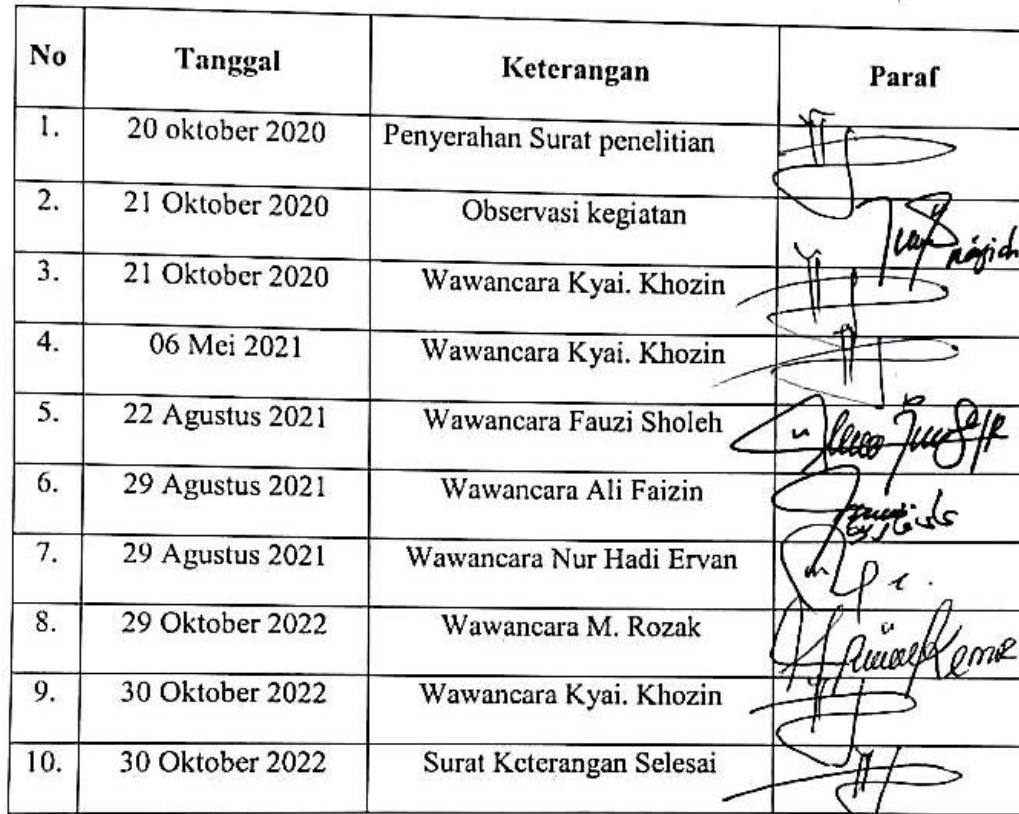 No Tanggal Keterangan Paraf
1. 20 oktober 2020 Penyerahan Surat penelitian
2. 21 Oktober 2020 Observasi kegiatan
3. 21 Oktober 2020 Wawancara Kyai. Khozin
4. 06 Mei 2021 Wawancara Kyai. Khozin
5. 22 Agustus 2021 Wawancara Fauzi Sholeh
6. 29 Agustus 2021 Wawancara Ali Faizin
7. 29 Agustus 2021 Wawancara Nur Hadi Ervan
8. 29 Oktober 2022 Wawancara M. Rozak
9. 30 Oktober 2022 Wawancara Kyai. Khozin
10. 30 Oktober 2022 Surat Keterangan Selesai